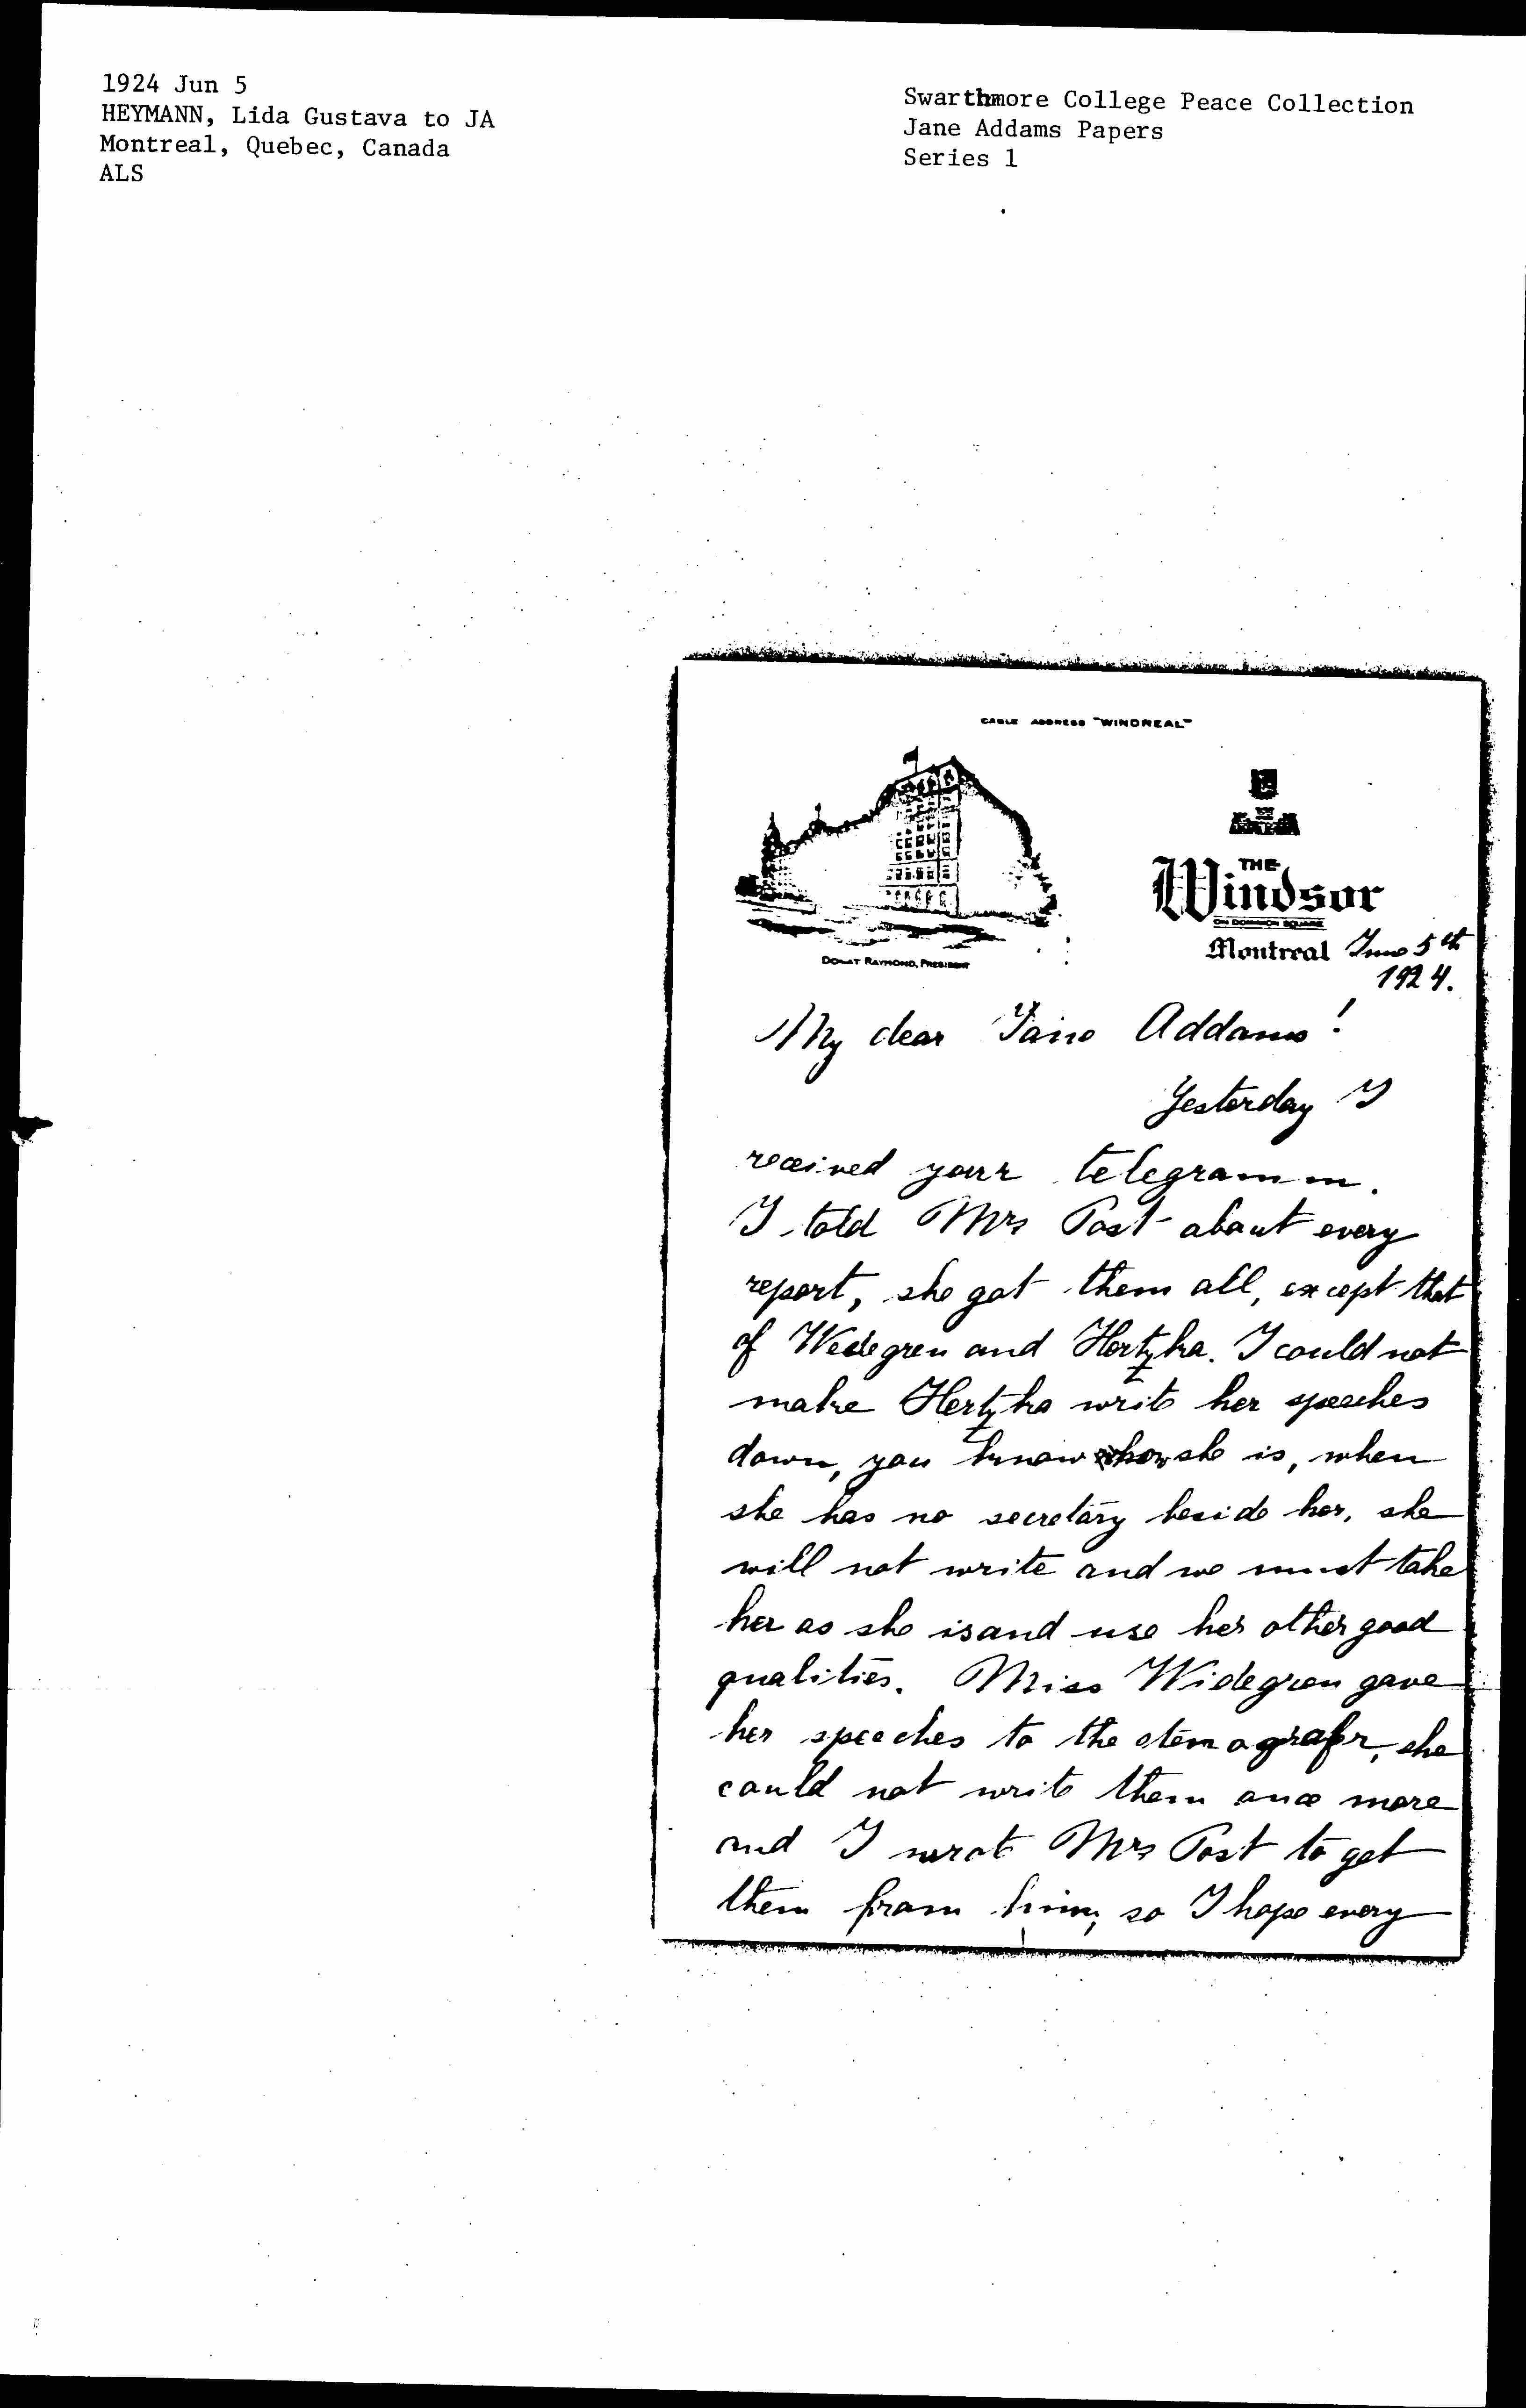 1924 Jun 5
HEYMANN, Lida Gustava to JA
Montreal, Quebec, Canada
ALS
Swarthmore College Peace Collection
Jane Addams Papers
Series 1
CABLE ADDRESS "WINDREAL"
THE
Windsor
ON DOMINION SQUARE
Montreal June 5th
1924.
DONAT RAYMOND, PRESIDENT
My dear Jane Addams!
Yesterday I
received your telegramm.
I told Mrs Post about every
report, she got them all, except that
of Widegren and Hertzka. I could not
make Hertzka write her speeches
down, you know how she is, when
she has no secretary beside her, she
will not write and we must take
her as she is and use her other good
qualities. Miss Widegren gave
her speeches to the stenografer, she
could not write them once more
and I wrote Mrs Post to get
them from him, so I hope every